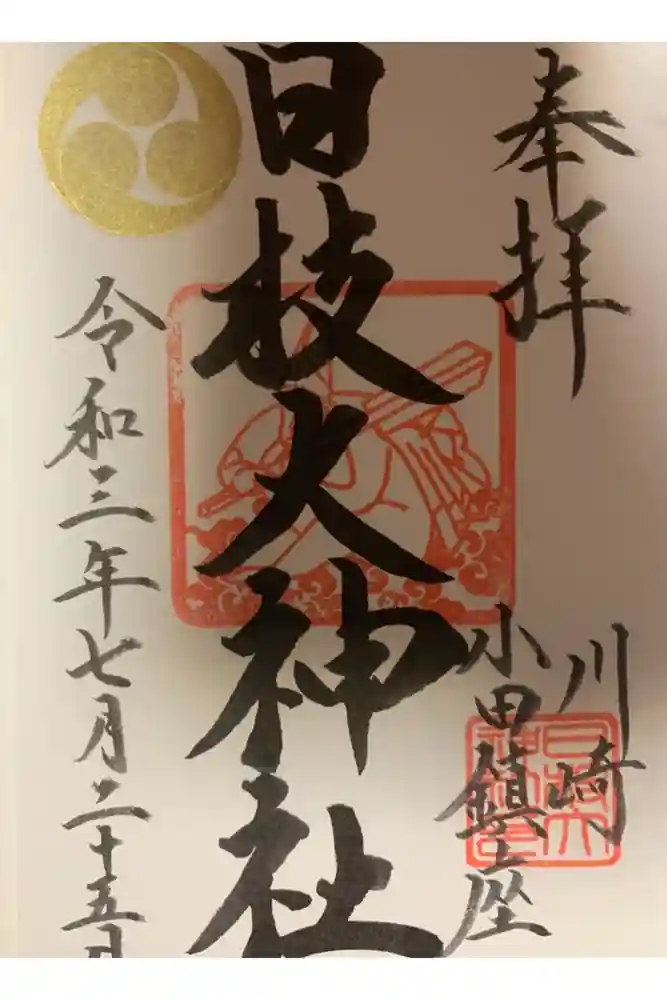 奉拝
川崎
小田鎮座
日枝大神社
令和三年七月二十五日